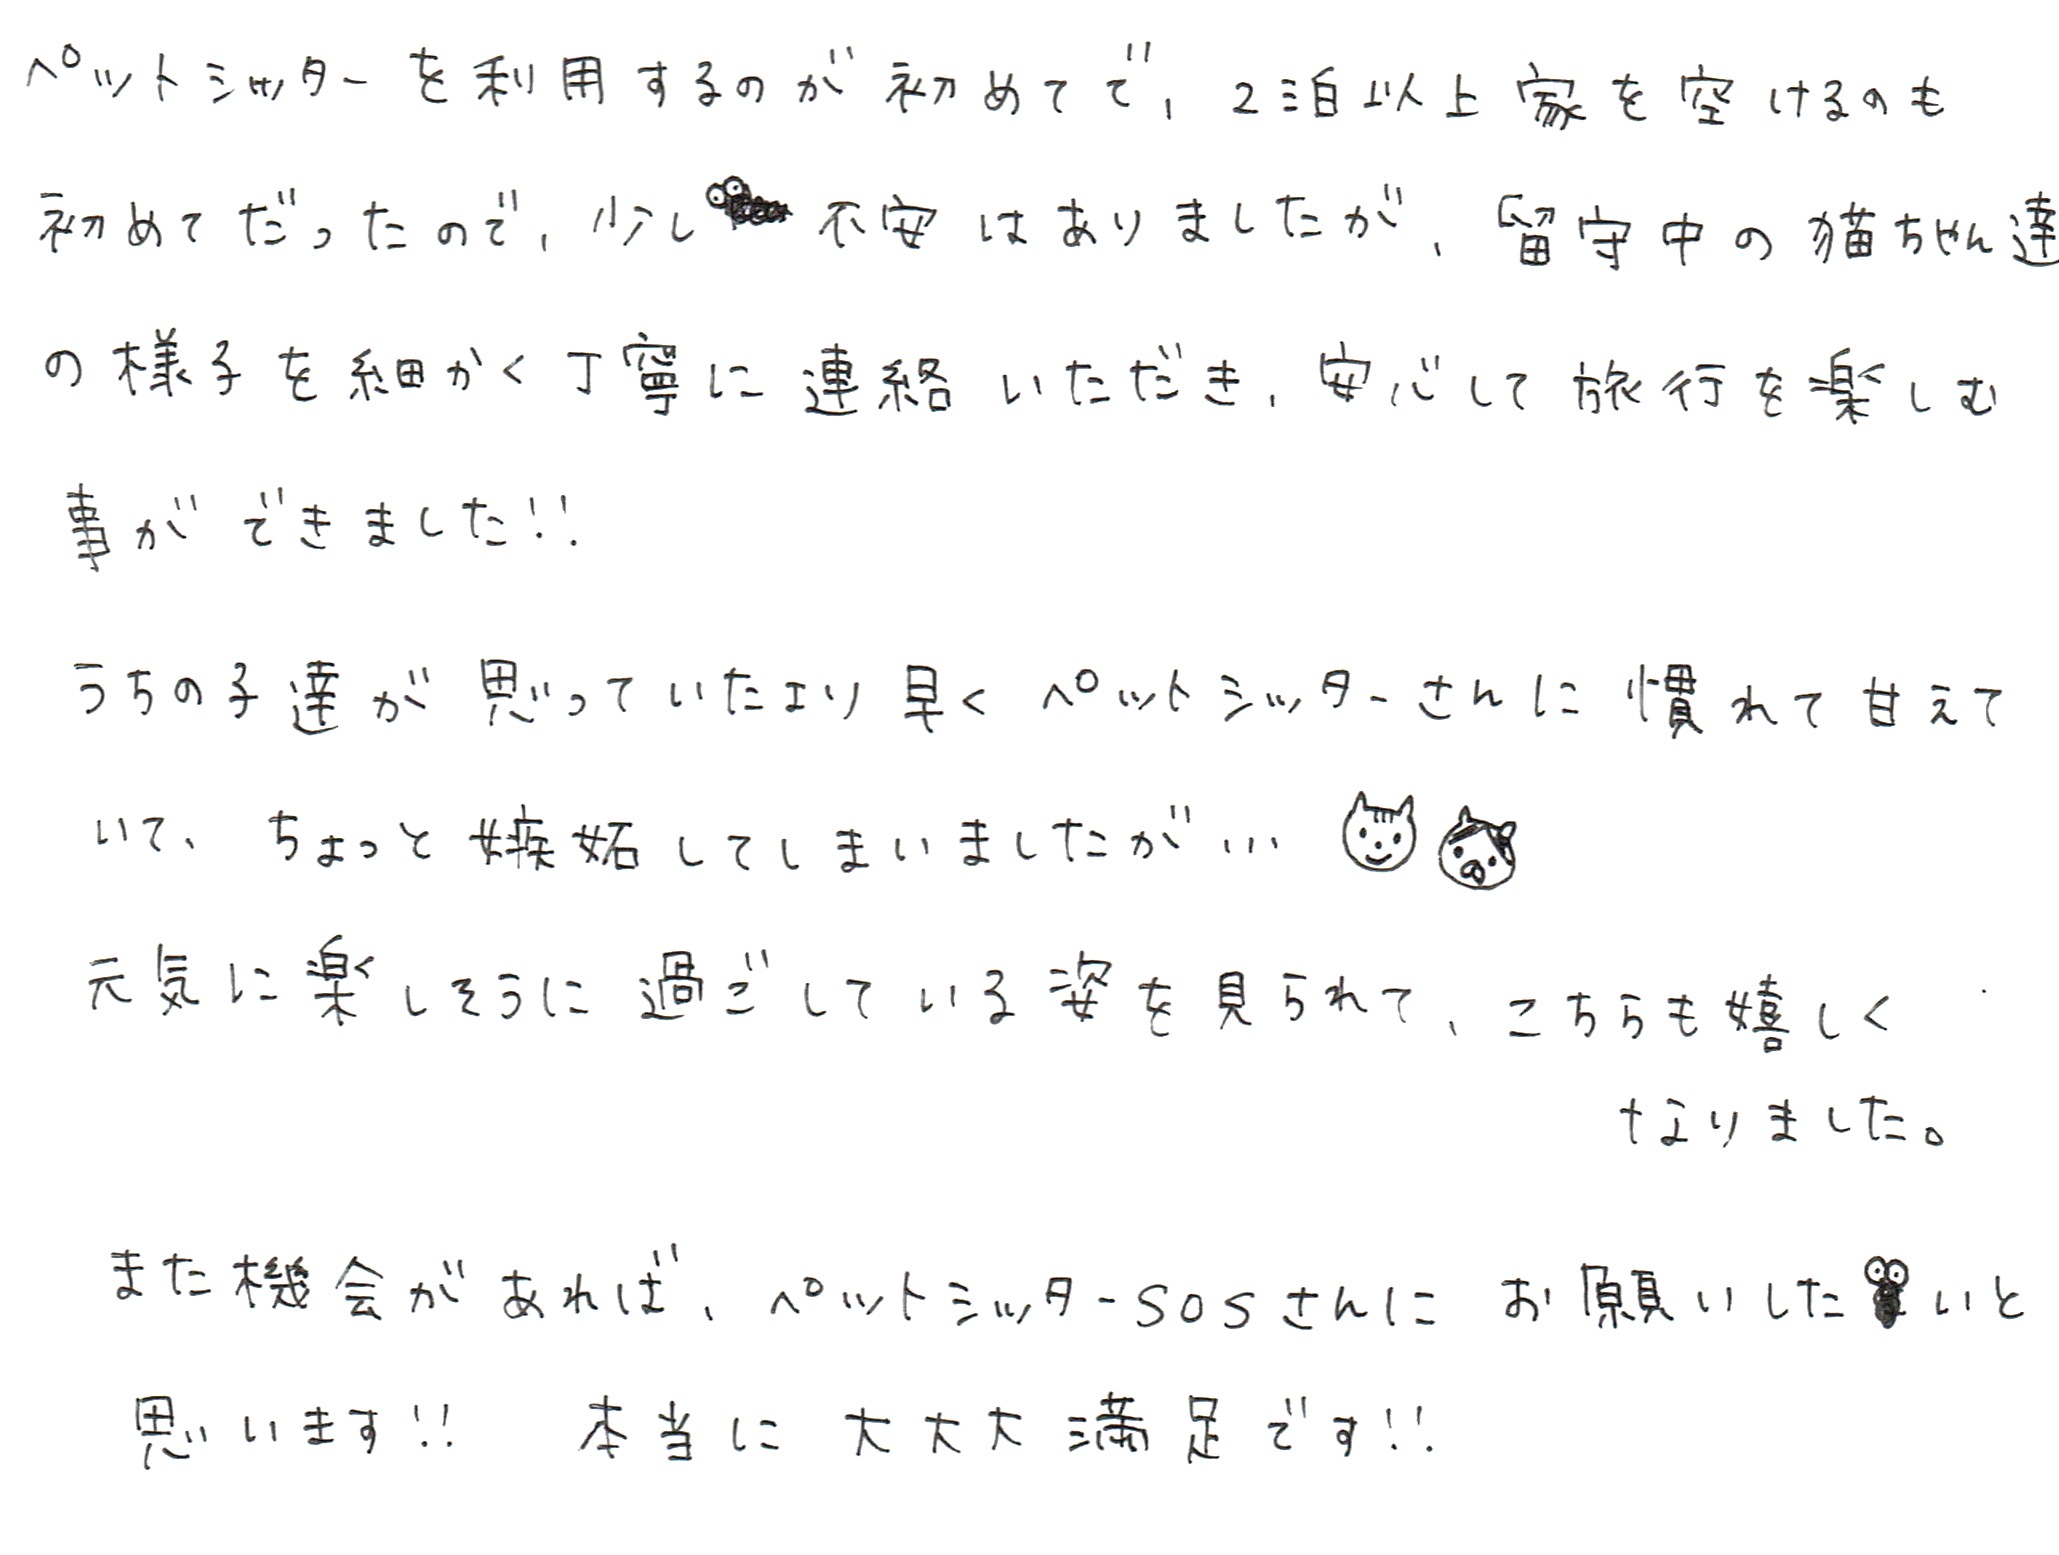 ペットシッターを利用するのが初めてで、2泊以上家を空けるのも
初めてだったので、少し不安はありましたが、留守中の猫ちゃん達
の様子を細かく丁寧に連絡いただき、安心して旅行を楽しむ
事ができました!!
うちの子達が思っていたより早くペットシッターさんに慣れて甘えて
いて、ちょっと嫉妬してしまいましたが…
元気に楽しそうに過ごしている姿を見られて、こちらも嬉しく
なりました。
また機会があれば、ペットシッターSOSさんにお願いしたいと
思います!! 本当に大大大満足です!!